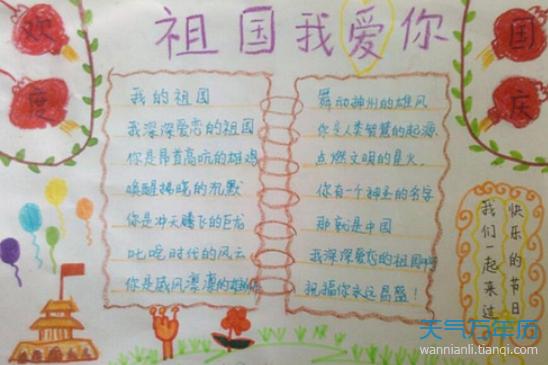 祖国我爱你
欢度
国庆
我的祖国
我深深爱恋的祖国
你是昂首高吭的雄鸡
唤醒拂晓的沉默
你是冲天腾飞的巨龙
叱咤时代的风云
你是威风凛凛的雄狮
舞动神州的雄风
你是人类智慧的起源
点燃文明的星火
你有一个神圣的名字
那就是中国
我深深爱恋的祖国啊
祝福你永远昌盛！
快乐的节日
我们一起来过
天气万年历
wannianli.tianqi.com